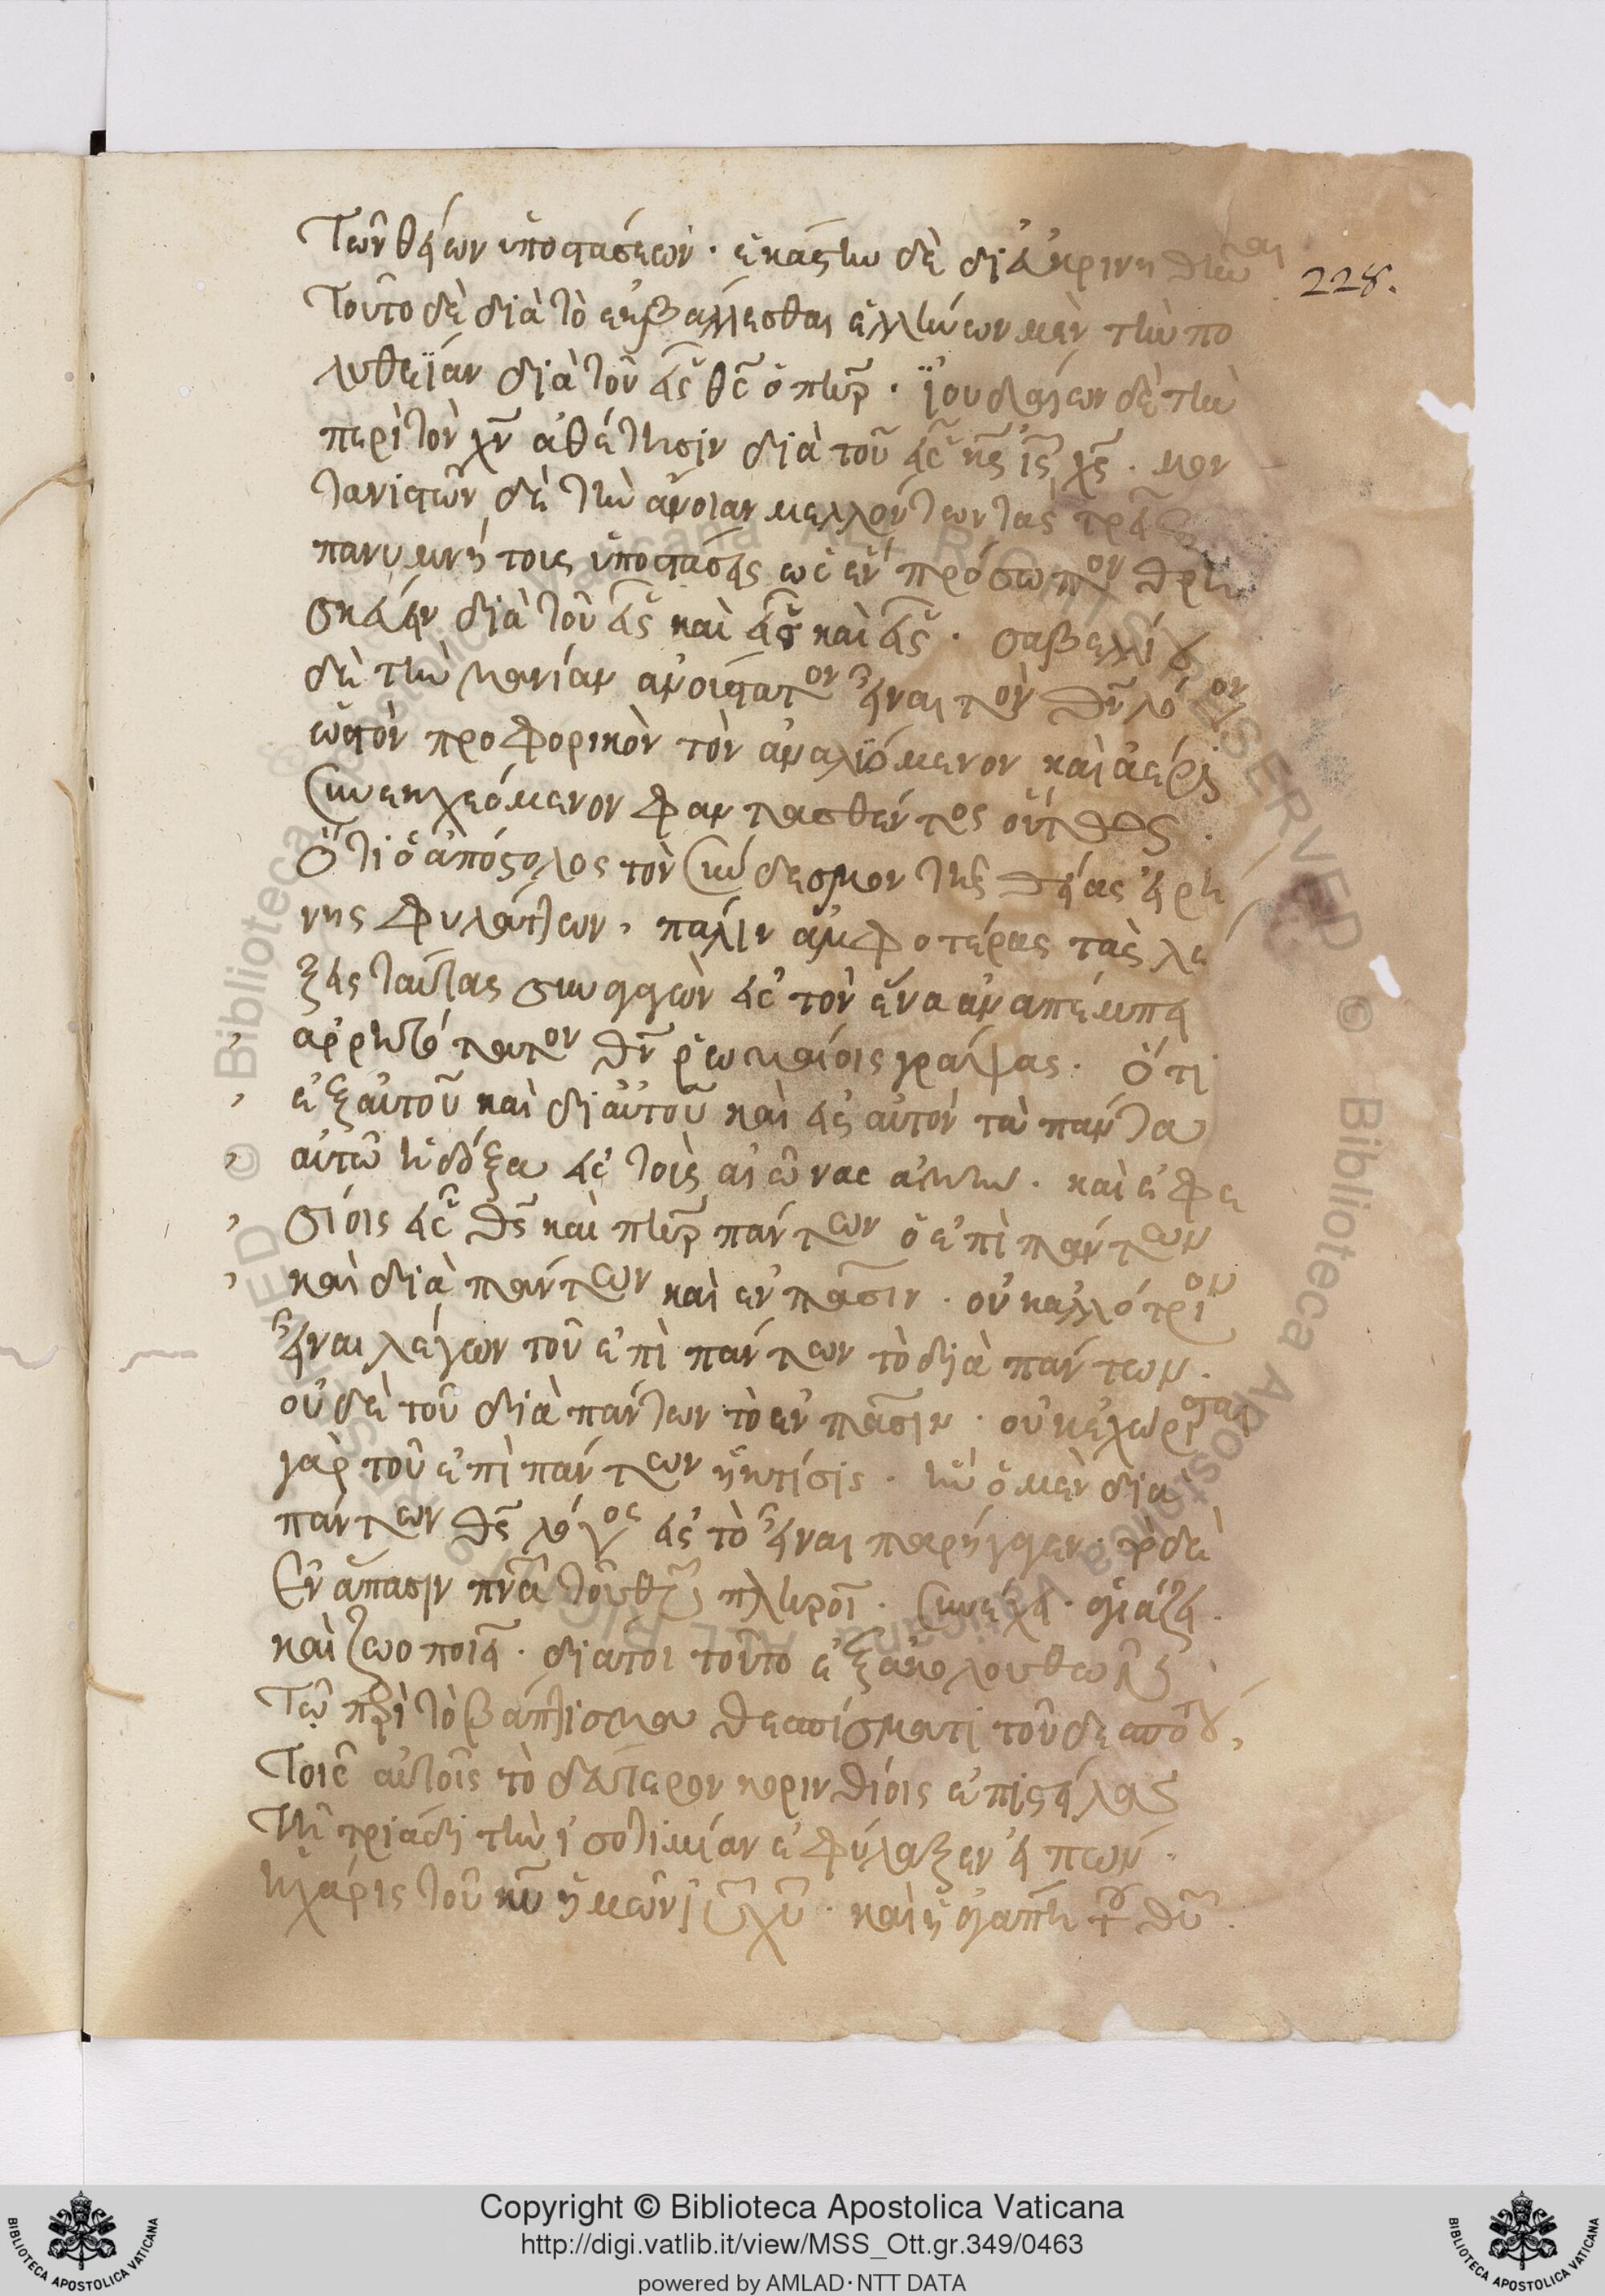 Τῶν θείων ὑποστάσεων· ἑκάστην δὲ διευκρινηθῆναι
228.
Τοῦτο δὲ διὰ τὸ ἐκβάλλεσθαι ἑλλήνων μὲν τὴν πο
λυθεΐαν διὰ τοῦ εἷς θς ὁ πηρ· ἰουδαίων δὲ τὴν
περὶ τὸν χν ἀθέτησιν διὰ τοῦ εἷς κς ις χς· μον
τανιστῶν δὲ τὴν ἄνοιαν μελλόντων τὰς τρεῖς
πανυμνήτους ὑποστάσεις ὡς ἓν πρόσωπον θρη
σκεύειν διὰ τοῦ εἷς καὶ εἷς καὶ εἷς· σαβελλίου
δὲ τὴν μανίαν ἀνούστατον εἶναι τὸν θν λόγον
ὡς τὸν προφορικὸν τὸν ἀναλυόμενον καὶ ἀέρι
συνεκχεόμενον φαντασθέντος οὕτως·
Ὅτι ὁ ἀπόστολος τὸν σύνδεσμον τῆς θείας εἰρή
νης φυλάττων, πάλιν ἀμφοτέρας τὰς λέ
ξεις ταύτας συναγαγὼν εἰς τὸν ἕνα ἀναπέμπει
ἀρρητότατον θν ῥωμαίοις γράψας· Ὅτι
ἐξ αὐτοῦ καὶ δι αὐτοῦ καὶ εἰς αὐτὸν τὰ πάντα
αὐτῶ ἡ δόξα εἰς τοὺς αἰῶνας ἀμήν· καὶ ἐφε
σίοις εἷς θς καὶ πηρ πάντων ὁ ἐπὶ πάντων
καὶ διὰ πάντων καὶ ἐν πᾶσιν· οὐκ ἀλλότριον
εἶναι λέγων τοῦ ἐπὶ πάντων τὸ διὰ πάντων·
οὐδὲ τοῦ διὰ πάντων τὸ ἐν πᾶσιν· οὐ κεχώρισται
γὰρ τοῦ ἐπὶ πάντων ἡ κτίσις· ἣν ὁ μὲν διὰ
πάντων θς λόγος εἰς τὸ εἶναι παρήγαγεν· τὸ δὲ
Ἐν ἅπασιν πνα τοῦ θυ πληροῖ· συνέχει· ἁγιάζει·
καὶ ζωοποιεῖ· διὰ τοι τοῦτο ἐξακολουθῶν
Τῷ περὶ τὸ βάπτισμα θεσπίσματι τοῦ δεσπότου,
Τοῖς αὐτοῖς τὸ δεύτερον κορινθίοις ἐπιστείλας
Τῇ τριάδι τὴν ἰσοτιμίαν ἐφύλαξεν εἰπών·
ἡ χάρις τοῦ κυ ἡμῶν ιυ χυ· καὶ ἡ ἀγάπη τοῦ θυ·
Copyright © Biblioteca Apostolica Vaticana
http://digi.vatlib.it/view/MSS_Ott.gr.349/0463
powered by AMLAD·NTT DATA
BIBLIOTECA APOSTOLICA VATICANA
BIBLIOTECA APOSTOLICA VATICANA